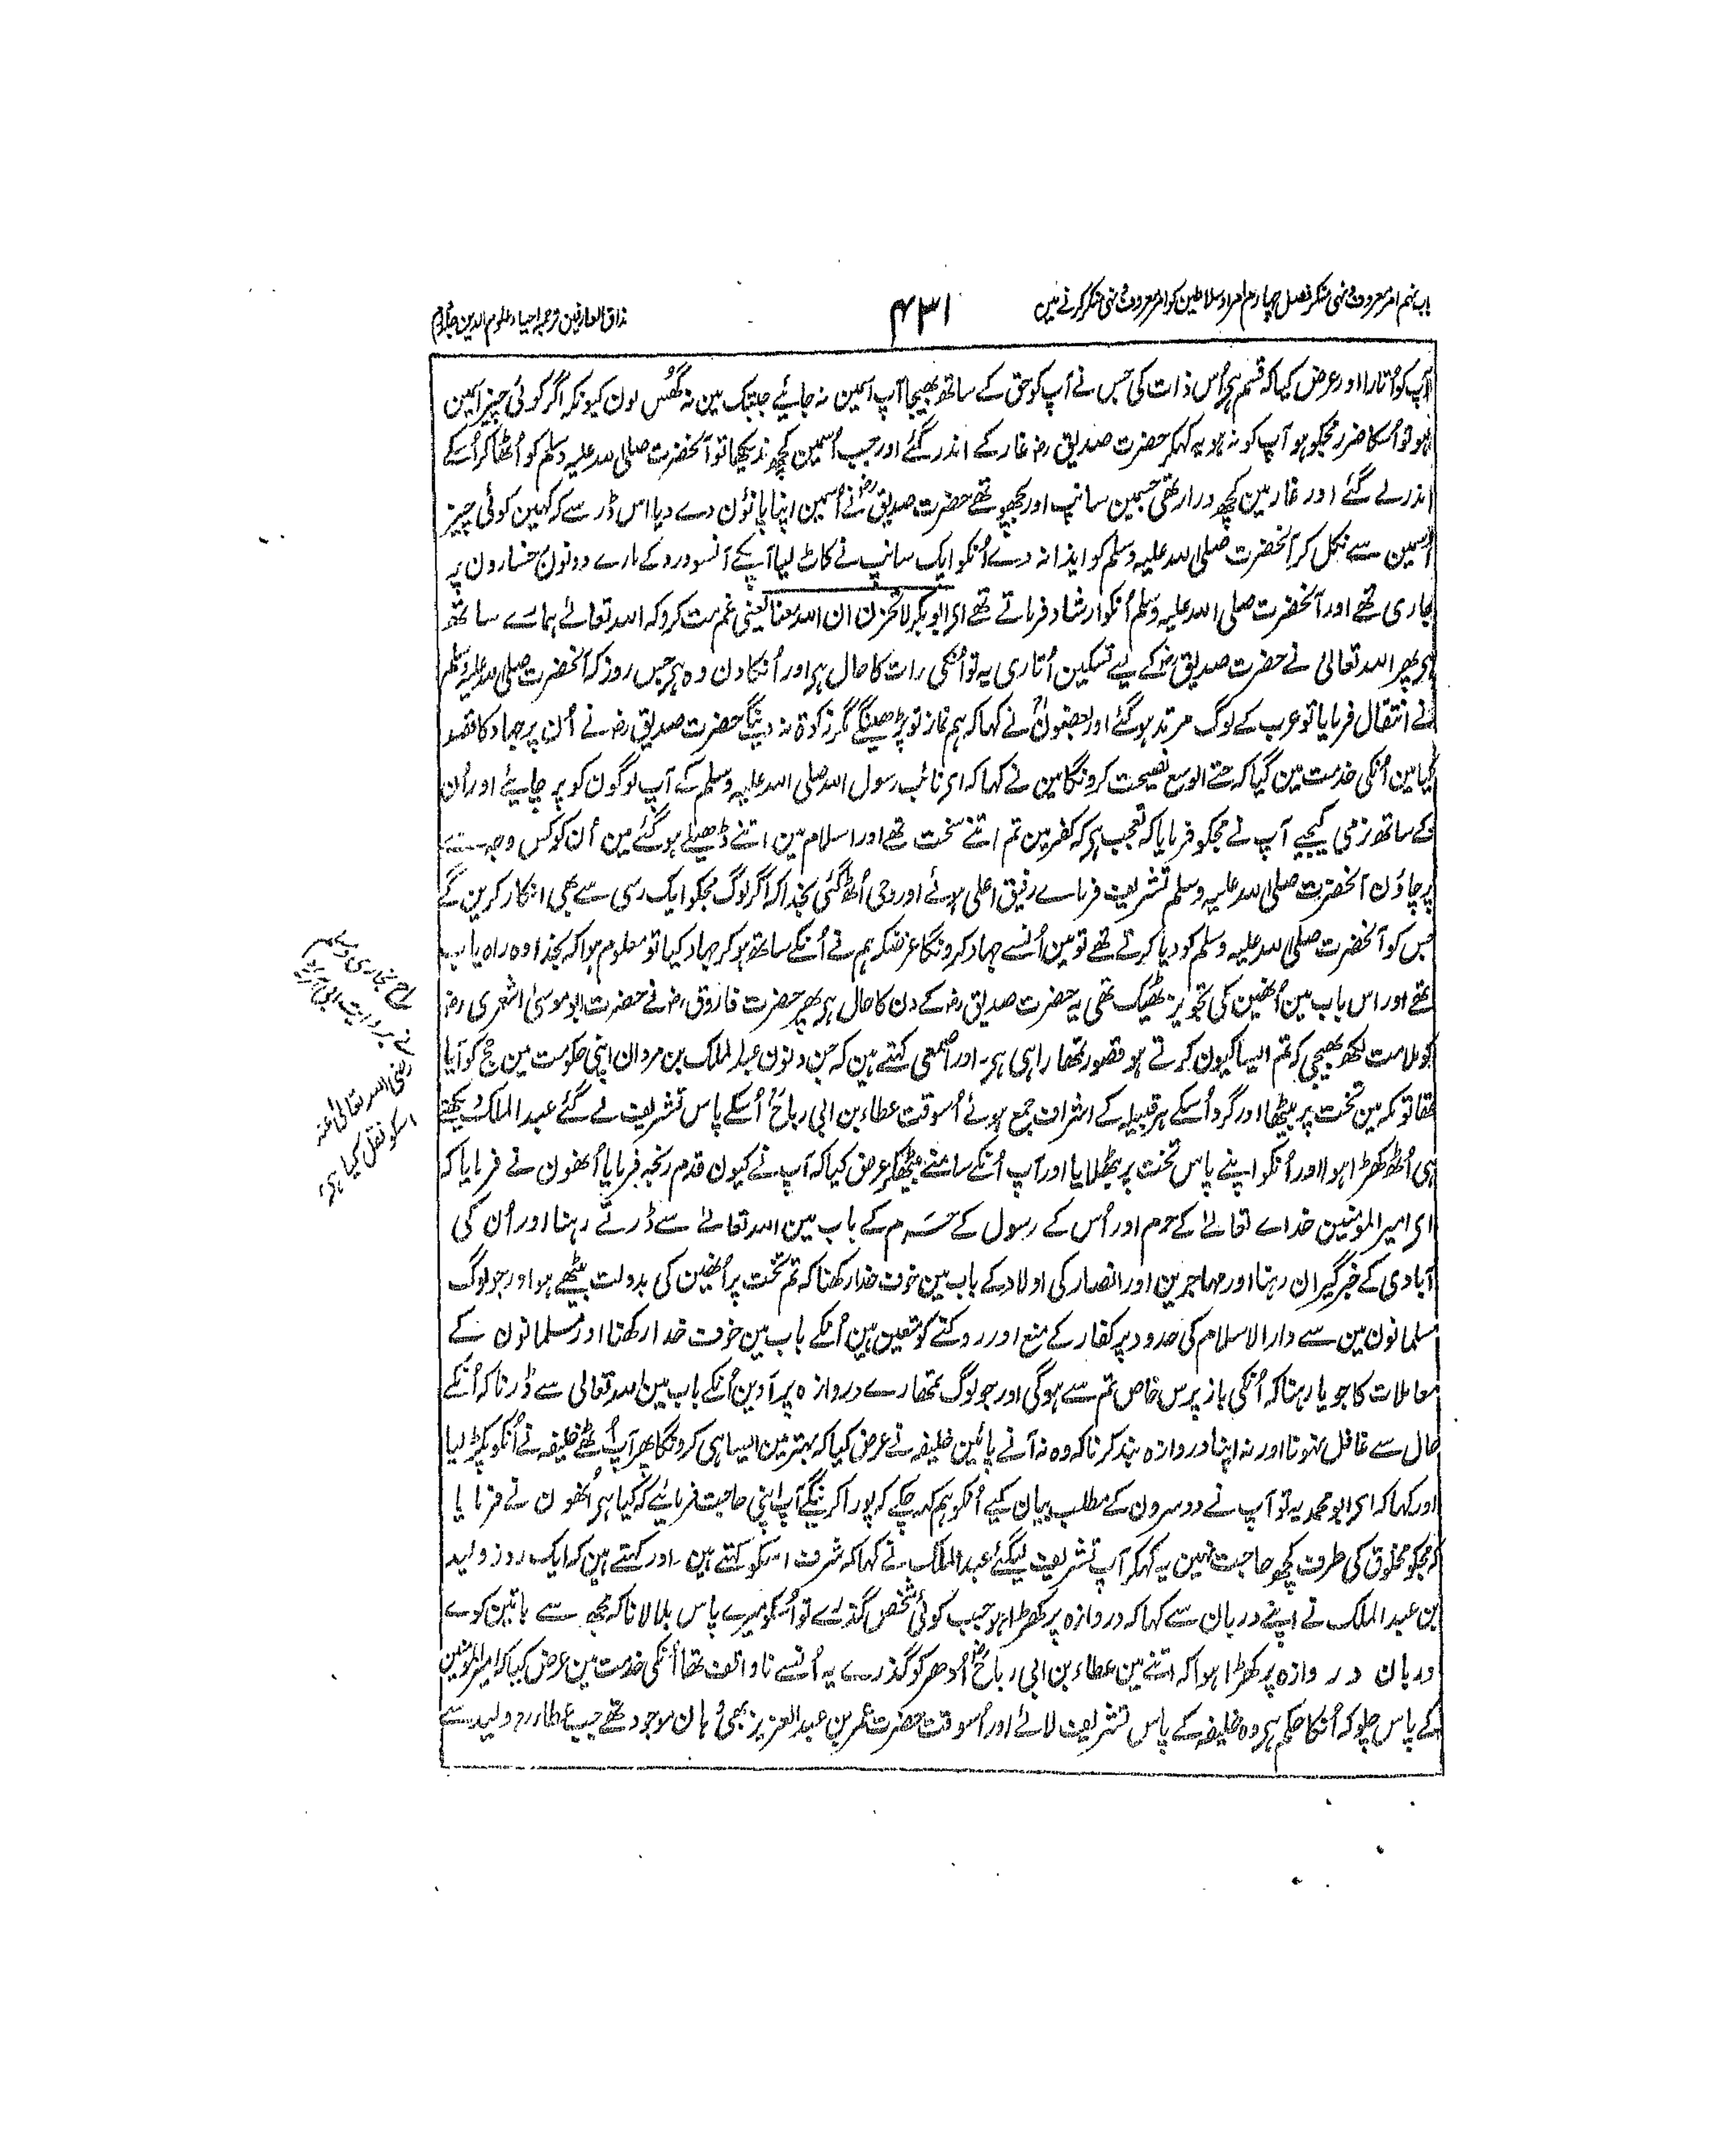 باب نہم امر معروف و نہی منکر فصل چہارم امراء و سلاطین کو امر معروف و نہی منکر کرنے مین
۴۳۱
مذاق العارفین ترجمہ احیاء علوم الدین جلد دوم
آپ کو اُتارا اور عرض کیا کہ قسم ہی اُس ذات کی جس نے آپ کو حق کے ساتھ بھیجا آپ اسمین نہ جائیے جبتک مین نہ گھُس لون کیونکہ اگر کوئی چیز اسمین
ہو تو اُسکا ضرر مجکو ہو آپ کو نہ ہو یہ کہکر حضرت صدیق رضہ غار کے اندر گئے اور جب اُسمین کچھ نہ دیکھا تو آنحضرت صلی اللہ علیہ وسلم کو اُٹھا کر اُسکے
اندر لے گئے اور غار مین کچھ دراز تھی جسمین سانپ اور بچھو تھے حضرت صدیق رضہ نے اُسمین اپنا پانوٗن دے دیا اس ڈر سے کہ کہین کوئی چیز
اُسمین سے نکل کر آنحضرت صلی اللہ علیہ وسلم کو ایذا نہ دے اُنکو ایک سانپ نے کاٹ لیا آپکے آنسو درد کے مارے دونون رخسارون پر
جاری تھے اور آنحضرت صلی اللہ علیہ وسلم اُنکو ارشاد فرماتے تھے ای ابوبکر لا تحزن ان اللہ معنا یعنی غم مت کرو کہ اللہ تعالےٰ ہمارے ساتھ
ہی پھر اللہ تعالیٰ نے حضرت صدیق رضہ کے لیے تسکین اُتاری یہ تو اُنکی رات کا حال ہی اور اُنکا دن وہ ہی جس روز کہ آنحضرت صلی اللہ علیہ وسلم
نے انتقال فرمایا تو عرب کے لوگ مرتد ہو گئے اور بعضون نے کہا کہ ہم نماز تو پڑھینگے مگر زکوٰۃ نہ دینگے حضرت صدیق رضہ نے اُن پر جہاد کا قصد
کیا مین اُنکی خدمت مین گیا کہ حتے الوسع نصیحت کرونگا مین نے کہا کہ ای نائب رسول اللہ صلی اللہ علیہ وسلم کے آپ لوگون کو پرچایئے اور اُن
کے ساتھ نرمی کیجیے آپ نے مجکو فرمایا کہ تعجب ہی کہ کفر مین تم اتنے سخت تھے اور اسلام مین اتنے ڈھیلے ہو گئے مین اُن کو کس وجہ سے
پرچاؤن آنحضرت صلی اللہ علیہ وسلم تشریف فرماے رفیق اعلی ہوئے اور وحی اُٹھ گئی بخدا کہ اگر لوگ مجکو ایک رسی سے بھی انکار کرین گے
جس کو آنحضرت صلی اللہ علیہ وسلم کو دیا کرتے تھے تو مین اُنسے جہاد کرونگا غرضکہ ہم نے اُنکے ساتھ ہو کر جہاد کیا تو معلوم ہوا کہ بخدا وہ راہ یاب
تھے اور اس باب مین اُنھین کی تجویز ٹھیک تھی یہ حضرت صدیق رضہ کے دن کا حال ہی پھر حضرت فاروق رضہ نے حضرت ابو موسیٰ اشعری رضہ
کو ملامت لکھ بھیجی کہ تم ایسا کیون کرتے ہو قصور تمھارا ہی ہی۔ اور اصمعی کہتے ہین کہ جن دنون عبد الملک بن مروان اپنی حکومت مین حج کو آیا
تھا تو مکہ مین تخت پر بیٹھا اور گرد اُسکے ہر قبیلہ کے اشراف جمع ہوئے اُسوقت عطاء بن ابی رباح اُسکے پاس تشریف لے گئے عبد الملک دیکھتے
ہی اُٹھ کھڑا ہوا اور اُنکو اپنے پاس تخت پر بٹھلایا اور آپ اُنکے سامنے بیٹھکر عرض کیا کہ آپ نے کیون قدم رنجہ فرمایا اُنھون نے فرمایا کہ
ای امیر المؤمنین خداے تعالےٰ کے حرم اور اُس کے رسول کے حرم کے باب مین اللہ تعالےٰ سے ڈرتے رہنا اور اُن کی
آبادی کے خبر گیران رہنا اور مہاجرین اور انصار کی اولاد کے باب مین خوف خدا رکھنا کہ تم تخت پر اُنھین کی بدولت بیٹھے ہو اور جو لوگ
مسلمانون مین سے دار الاسلام کی حدود پر کفار کے منع اور روکنے کو متعین ہین اُنکے باب مین خوف خدا رکھنا اور مسلمانون کے
معاملات کا جویا رہنا کہ اُنکی باز پرس خاص تم سے ہو گی اور جو لوگ تمھارے دروازہ پر آدین اُنکے باب مین اللہ تعالی سے ڈرنا کہ اُنکے
حال سے غافل نہونا اور نہ اپنا دروازہ بند کرنا کہ وہ نہ آنے پائین خلیفہ نے عرض کیا کہ بہتر مین ایسا ہی کرونگا پھر آپ اُٹھے خلیفہ نے اُنکو پکڑ لیا
اور کہا کہ ای ابو محمد یہ تو آپ نے دوسرون کے مطلب بیان کیے اُنکو ہم کہہ چکے کہ پورا کرینگے آپ اپنی حاجت فرمائیے کہ کیا ہی اُنھون نے فرمایا
کہ مجکو مخلوق کی طرف کچھ حاجت نہین یہ کہکر آپ تشریف لیگئے عبد الملک نے کہا کہ شرف اسکو کہتے ہین۔ اور کہتے ہین کہ ایک روز ولید
بن عبد الملک نے اپنے دربان سے کہا کہ دروازہ پر کھڑا ہو جب کوئی شخص گذرے تو اُسکو میرے پاس بلا لانا کہ مجھ سے باتین کرے
دربان دروازہ پر کھڑا ہوا کہ اتنے مین عطاء بن ابی رباح اُدھر کو گذرے یہ اُنسے ناواقف تھا اُنکی خدمت مین عرض کیا کہ امیر المؤمنین
کے پاس چلو کہ اُنکا حکم ہی وہ خلیفہ کے پاس تشریف لائے اور اُسوقت حضرت عمر بن عبد العزیز بھی وہان موجود تھے جب عطاء رح ولید سے
بخاری و مسلم
نے بروایت ابی ہریرہ
رضی اللہ تعالیٰ عنہ
اسکو نقل کیا ہی